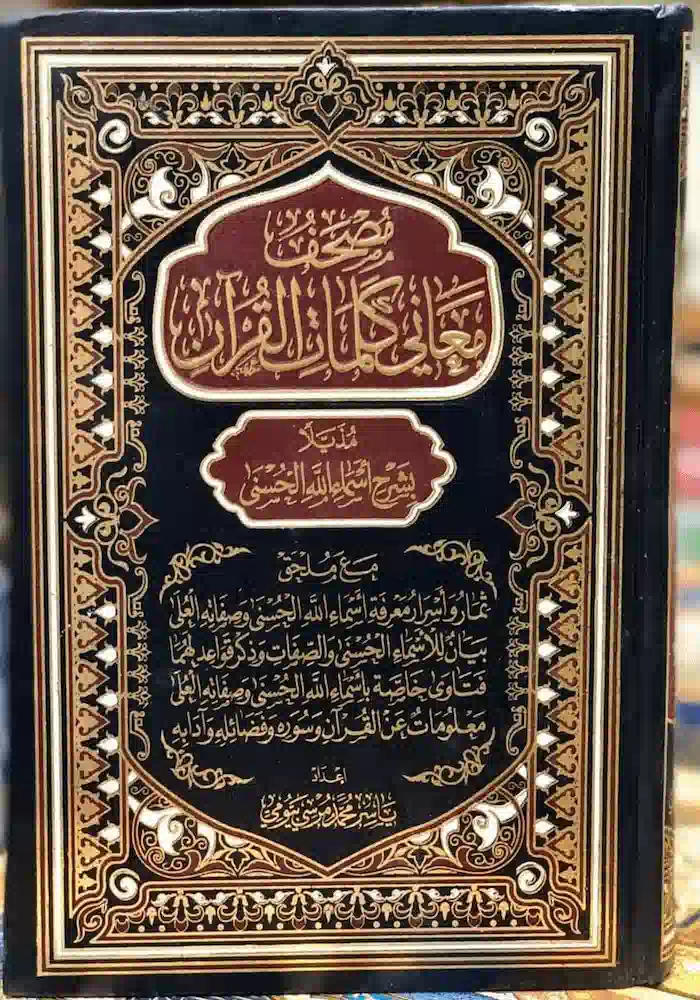 مُصْحَفُ
مَعَانِي كَلِمَاتِ الْقُرْآنِ
مُذَيَّلًا
بِشَرْحِ أَسْمَاءِ اللَّهِ الْحُسْنَى
مَعَ مُلْحَقِ
ثِمَارُ وَأَسْرَارُ مَعْرِفَةِ أَسْمَاءِ اللَّهِ الْحُسْنَى وَصِفَاتِهِ الْعُلَى
بَيَانٌ لِلْأَسْمَاءِ الْحُسْنَى وَالصِّفَاتِ وَذِكْرُ قَوَاعِدَ لَهُمَا
فَتَاوَى خَاصَّة بِأَسْمَاءِ اللَّهِ الْحُسْنَى وَصِفَاتِهِ الْعُلَى
مَعْلُومَاتٌ عَنِ الْقُرْآنِ وَسُوَرِهِ وَفَضَائِلِهِ وَآدَابِهِ
إِعْدَادُ
يَاسِر مُحَمَّد مُرْسِي بَيُّومِي